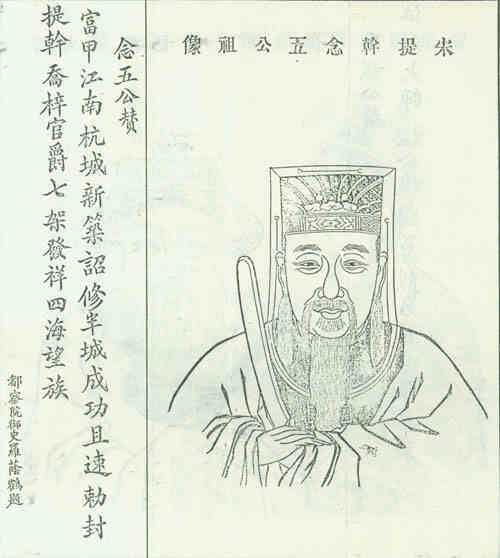 朱提幹念五公祖像
念五公贊
富甲江南杭城新築詔修半城成功且速勅封
提幹喬梓官爵七架發祥四海望族
都察院御史羅蔭鶴題